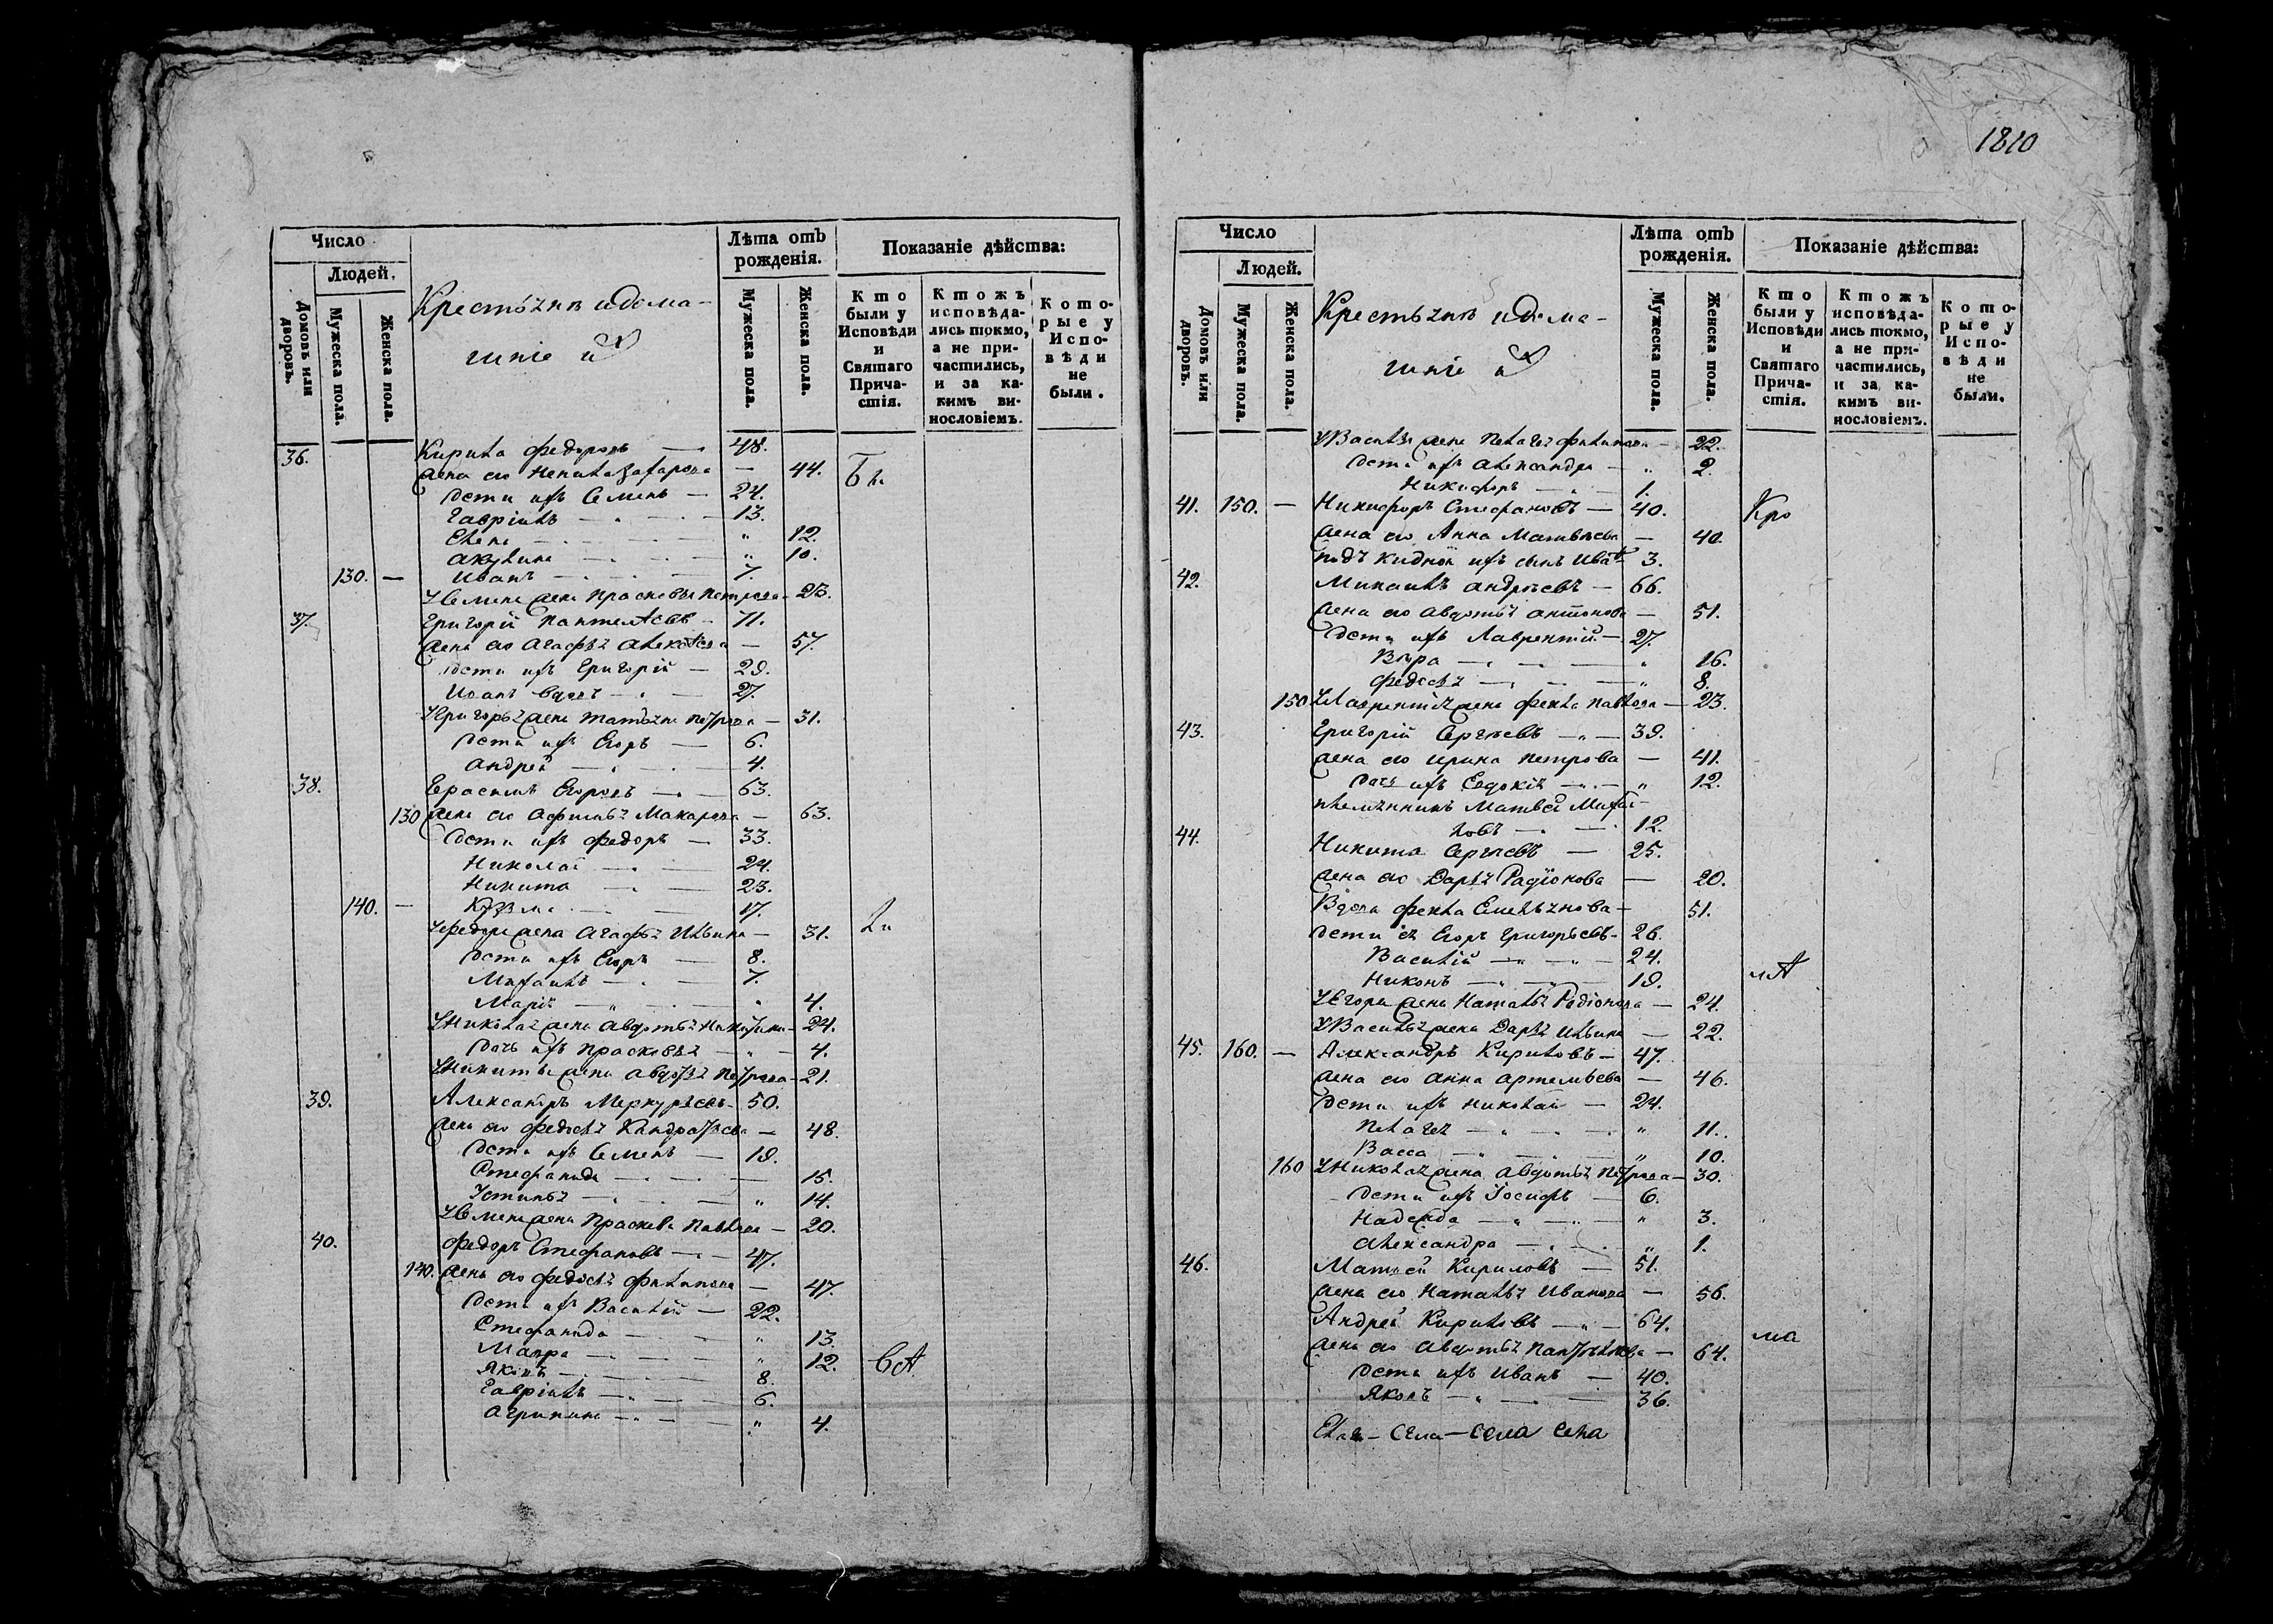 Число
Людей.
Домовъ или дворовъ.
Мужеска пола.
Женска пола.
Крестьянѣ и дома-
шніе ихъ
Лѣта отъ рожденія.
Мужеска пола.
Женска пола.
Показаніе дѣйства:
Кто были у Исповѣди и Святаго Причастія.
Ктожъ исповѣдались токмо, а не причастились, и за какимъ винословіемъ.
Которые у Исповѣди не были.
36. Кирила Федоровъ — 48.
жена его Ненила Захарова — 44. Бы
дети ихъ Семенъ — 24.
Гавріилъ — 13.
Елена — " 12.
Акулина — " 10.
130. — Иванъ — 7.
У Семена жена Прасковья Петрова — 23.
37. Григорій Пантелѣевъ — 71.
жена его Агафья Алексѣева — 57.
дети ихъ Григорій — 29.
Иванъ вдовъ — 27.
У Григорья жена Татьяна Петрова — 31.
дети ихъ Егоръ — 6.
Андрей — 4.
38. Герасимъ Егоровъ — 63.
130 жена его Афимья Макарова — 63.
дети ихъ Федоръ — 33.
Николай — 24.
Никита — 23.
140. — Кузма — 17.
У Федора жена Агафья Ильина — 31. ли
дети ихъ Егоръ — 8.
Михаилъ — 7.
Марія — " 4.
У Николая жена Авдотья Никитина — 24.
дочь ихъ Прасковья — " — 4.
У Никиты жена Авдотья Петрова — 21.
39. Александръ Меркурьевъ — 50.
жена его Федосья Кандратьева — 48.
дети ихъ Семенъ — 19.
Стефанида — 15.
Устинья — " 14.
У Семена жена Праскева Павлова — 20.
40. Федоръ Стефановъ — 47.
140. жена его Федосья Филипова — 47.
дети ихъ Василій — 22.
Стефанида — " 13.
Мавра — " 12. всѣ
Яковъ — 8.
Гавріилъ — 6.
Агрипина — " 4.
1810
Число
Людей.
Домовъ или дворовъ.
Мужеска пола.
Женска пола.
Крестьянѣ и дома-
шніе ихъ
Лѣта отъ рожденія.
Мужеска пола.
Женска пола.
Показаніе дѣйства:
Кто были у Исповѣди и Святаго Причастія.
Ктожъ исповѣдались токмо, а не причастились, и за какимъ винословіемъ.
Которые у Исповѣди не были.
У Василья жена Пелагея Филипова — 22.
дети ихъ Александра — " 2.
Никифоръ — 1.
41. 150. — Никифоръ Стефановъ — 40. Кро
жена его Анна Матвѣева — 40.
подъ кидной ихъ сынъ Иванъ 3.
42. Михаилъ Андрѣевъ — 66.
жена его Авдотья Антонова — 51.
дети ихъ Лаврентій — 27.
Вѣра — " 16.
Федосья — " 8.
150 У Лаврентія жена Фекла Павлова — 23.
43. Григорій Сергѣевъ — " — 39.
жена его Ирина Петрова — 41.
дочь ихъ Евдокія — " 12.
племянникъ Матвей Михай-
ловъ — 12.
44. Никита Сергѣевъ — 25.
жена его Дарья Радіонова — 20.
Вдова Фекла Емельянова — 51.
дети ея Егоръ Григорьевъ — 26.
Василій — " — " — 24.
Никонъ — " — 19. мѣ
У Егора жена Наталья Родіонова — 24.
У Василья жена Дарья Ильина — 22.
45. 160. — Александръ Кириловъ — 47.
жена его Анна Артемьева — 46.
дети ихъ Николай — 24.
Пелагея — " — " 11.
Васса — " 10.
160 У Николая жена Авдотья Петрова — 30.
дети ихъ Іосифъ — 6.
Надежда — " — " 3.
Александра — " 1.
46. Матвей Кириловъ — 51.
жена его Наталья Иванова — 56.
Андрей Кириловъ — " — 64. ма
жена его Авдотья Пантелѣева — 64.
дети ихъ Иванъ — 40.
Яковъ — " — 36.
села — села